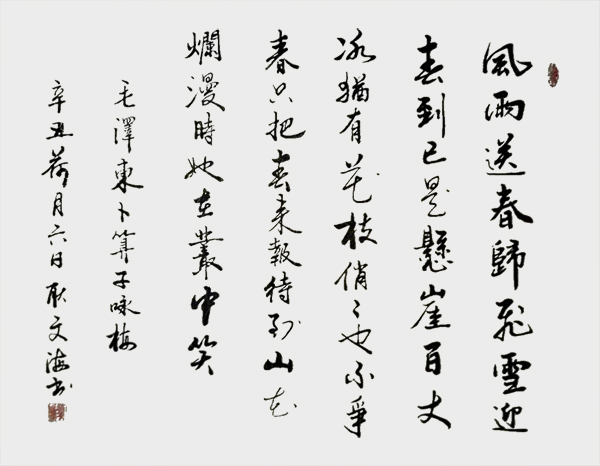 風雨送春歸飛雪迎
春到已是懸崖百丈
冰猶有花枝俏〻也不爭
春只把春來報待到山花
爛漫時她在叢中笑
毛澤東卜算子咏梅
辛丑荷月六日耿文海書